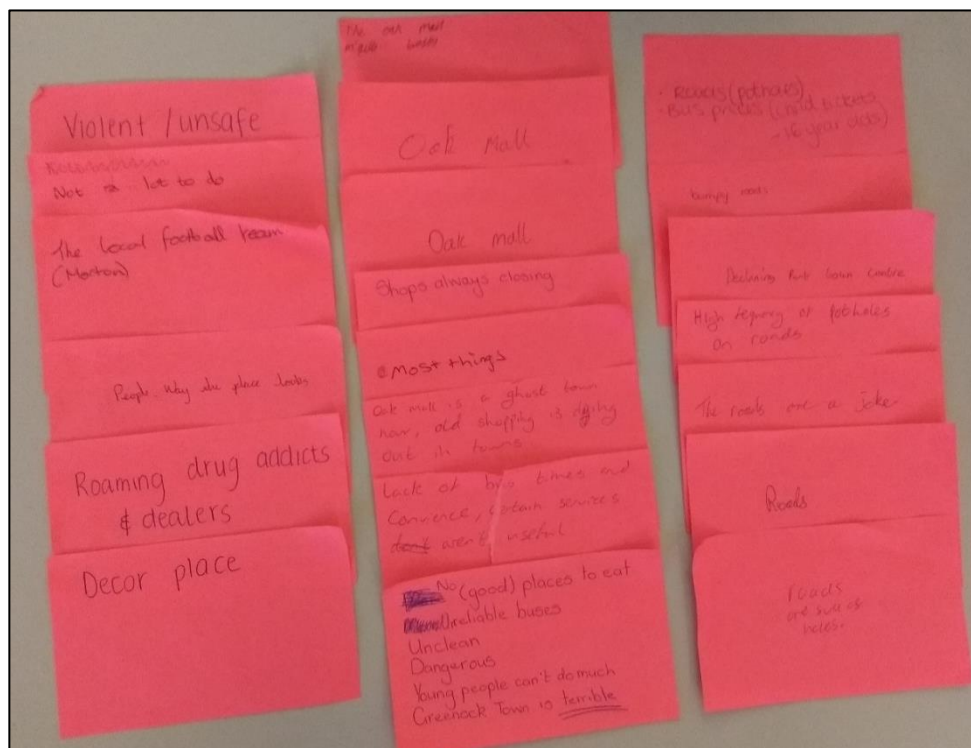 Violent / unsafe
Not a lot to do
The Local football team
(Morton)
People. Way the place looks
Roaming drug addicts
& dealers
Decor place
The oak mall
needs
Oak Mall
Oak mall
Shops always closing
Most things
Oak mall is a ghost town
now, old shopping is dying
out in towns
Lack of bus times and
Convience, certain services
aren't useful
No (good) places to eat
Unreliable buses
Unclean
Dangerous
Young people can't do much
Greenock Town is terrible
- Roads (potholes)
- Bus prices (child tickets
- 16 year olds)
bumpy roads
Declining Port town centre
High feqency of potholes
on roads
The roads are a joke
Roads
roads
are full of
holes.